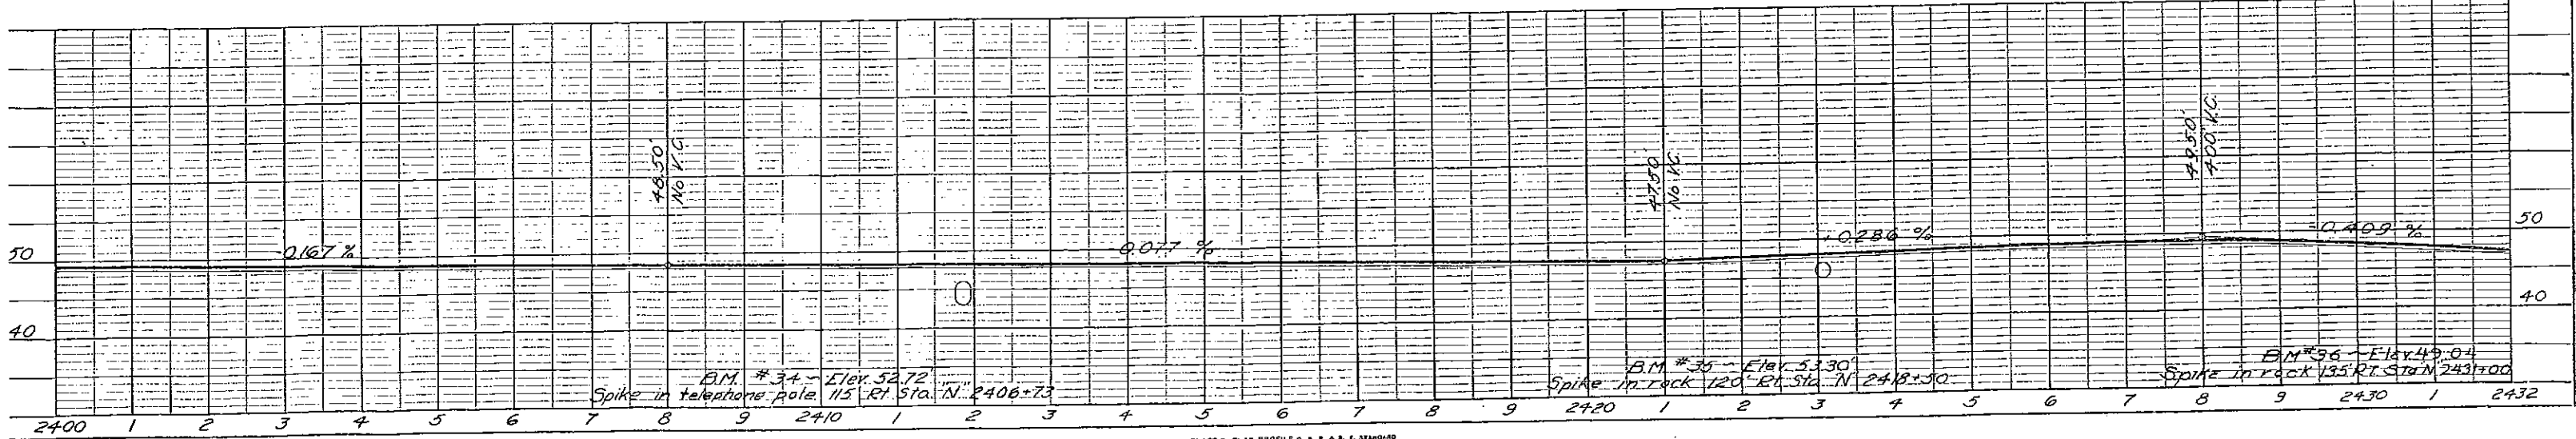 48.50'
No V.C.
47.50'
No V.C.
49.50'
400' V.C.
50
50
-0.167 %
-0.077 %
+0.286 %
-0.409 %
40
40
B.M. #34 ~ Elev. 52.72'
Spike in telephone pole 115' Rt. Sta. "N" 2406+73
B.M. #35 ~ Elev. 53.30'
Spike in rock 120' Rt. Sta. "N" 2418+50
B.M. #36 ~ Elev. 49.04
Spike in rock 135' RT. Sta N 2431+00
2400 1 2 3 4 5 6 7 8 9 2410 1 2 3 4 5 6 7 8 9 2420 1 2 3 4 5 6 7 8 9 2430 1 2432